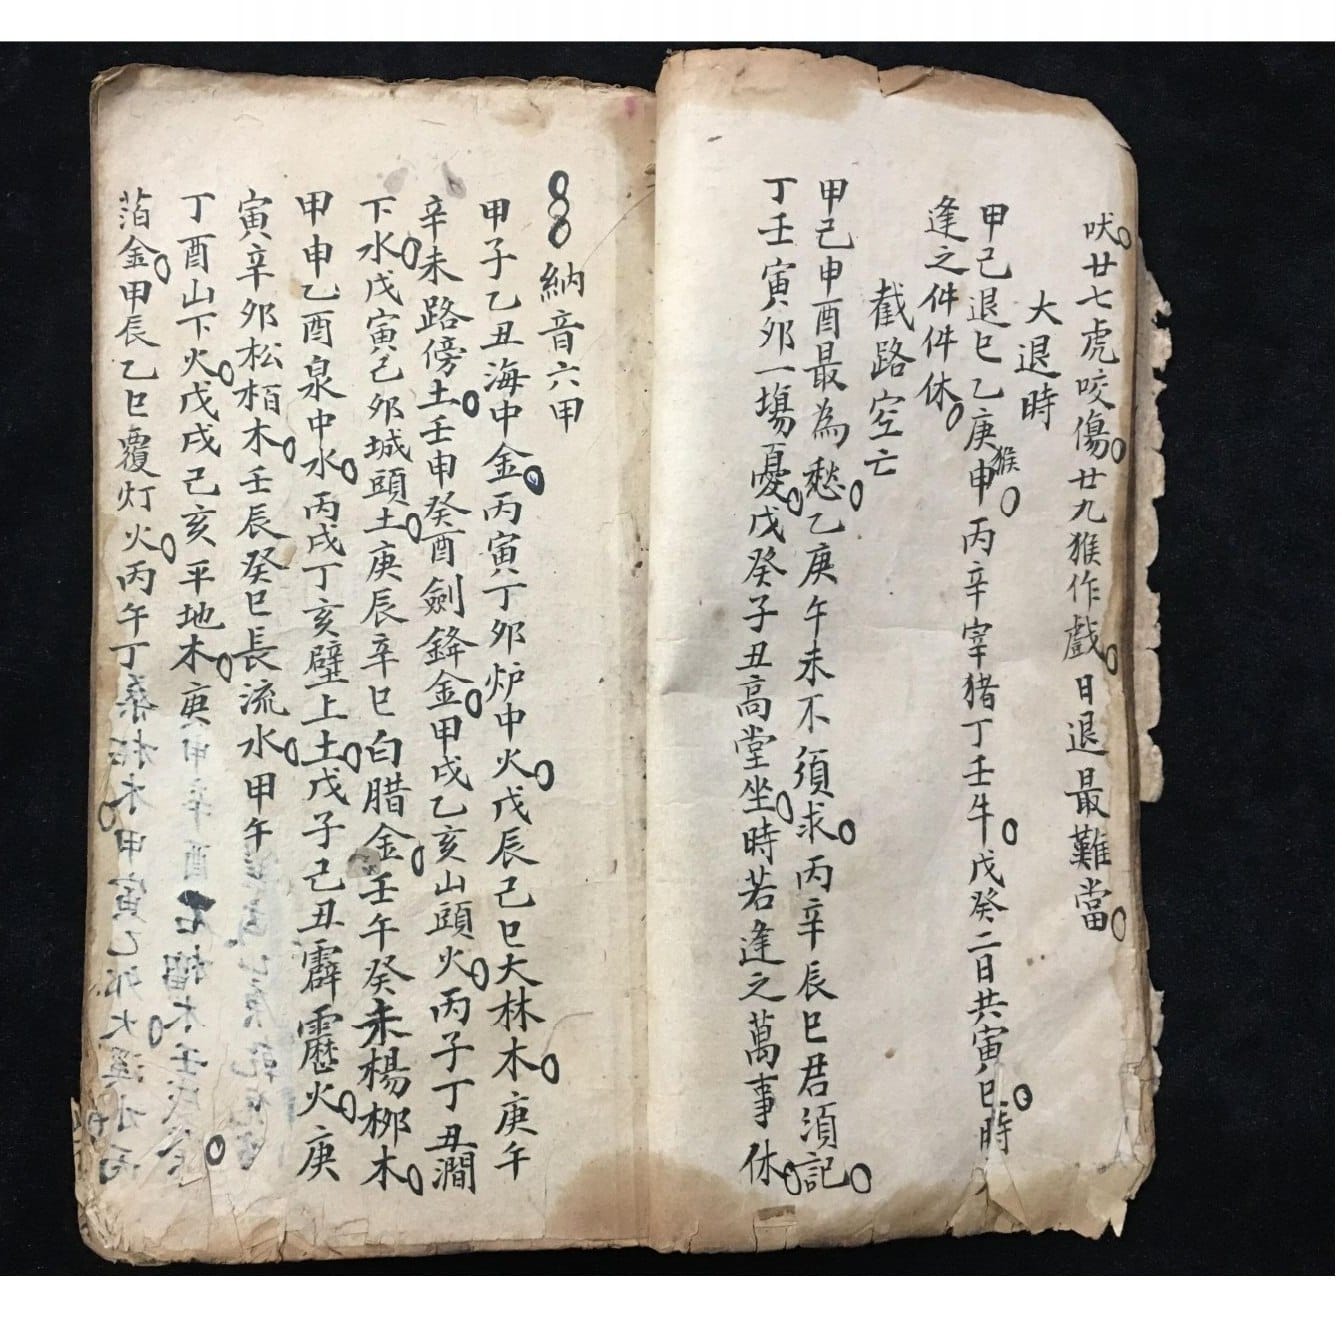 吠廿七虎咬傷廿九猴作戲日退最難當
大退時
甲己退巳乙庚申猴丙辛宰猪丁壬牛戊癸二日共寅巳時
逢之件件休
截路空亡
甲己申酉最為愁乙庚午未不須求丙辛辰巳君須記
丁壬寅夘一塲憂戊癸子丑高堂坐時若逢之萬事休
納音六甲
甲子乙丑海中金丙寅丁夘炉中火戊辰己巳大林木庚午
辛未路傍土壬申癸酉劍鋒金甲戌乙亥山頭火丙子丁丑澗
下水戊寅己夘城頭土庚辰辛巳白腊金壬午癸未楊栁木
甲申乙酉泉中水丙戌丁亥壁上土戊子己丑霹靂火庚
寅辛夘松栢木壬辰癸巳長流水甲午
丁酉山下火戊戌己亥平地木庚
箔金甲辰乙巳覆灯火丙午丁